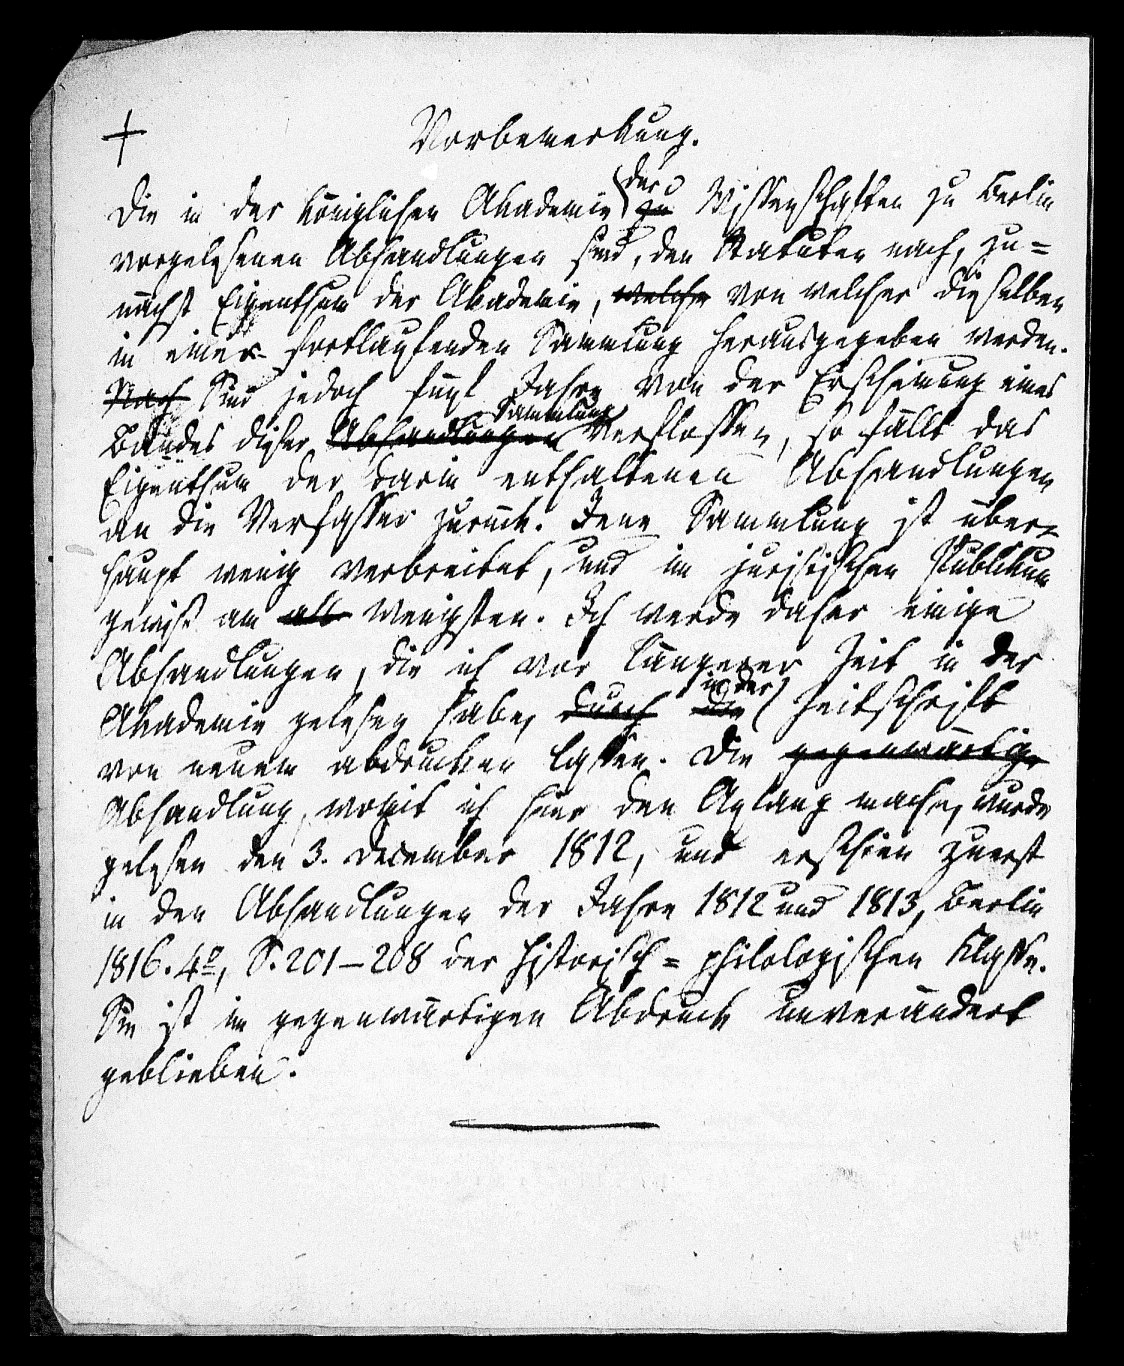 Vorbemerkung.
Die in der Königlichen Akademie der zu Wissenschaften zu Berlin
vorgelesenen Abhandlungen sind, den Statuten nach, zu=
nächst Eigenthum der Akademie, welche von welcher dieselben
in einer fortlaufenden Sammlung herausgegeben werden.
Nach Sind jedoch fünf Jahre von der Erscheinung eines
Bandes dieser Abhandlungen Sammlung verflossen, so fällt das
Eigenthum der darin enthaltenen Abhandlungen
an die Verfasser zurück. Jene Sammlung ist über=
haupt wenig verbreitet, und im juristischen Publikum
gewiß am all wenigsten. Ich werde daher einige
Abhandlungen, die ich vor längerer Zeit in der
Akademie gelesen habe, durch die in der Zeitschrift
von neuem abdrucken lassen. Die gegenwärtige
Abhandlung, womit ich hier den Anfang mache, wurde
gelesen den 3. December 1812, und erschien zuerst
in den Abhandlungen der Jahre 1812 und 1813, Berlin
1816. 4º, S. 201–208 der historisch=philologischen Klasse.
Sie ist im gegenwärtigen Abdruck unverändert
geblieben.